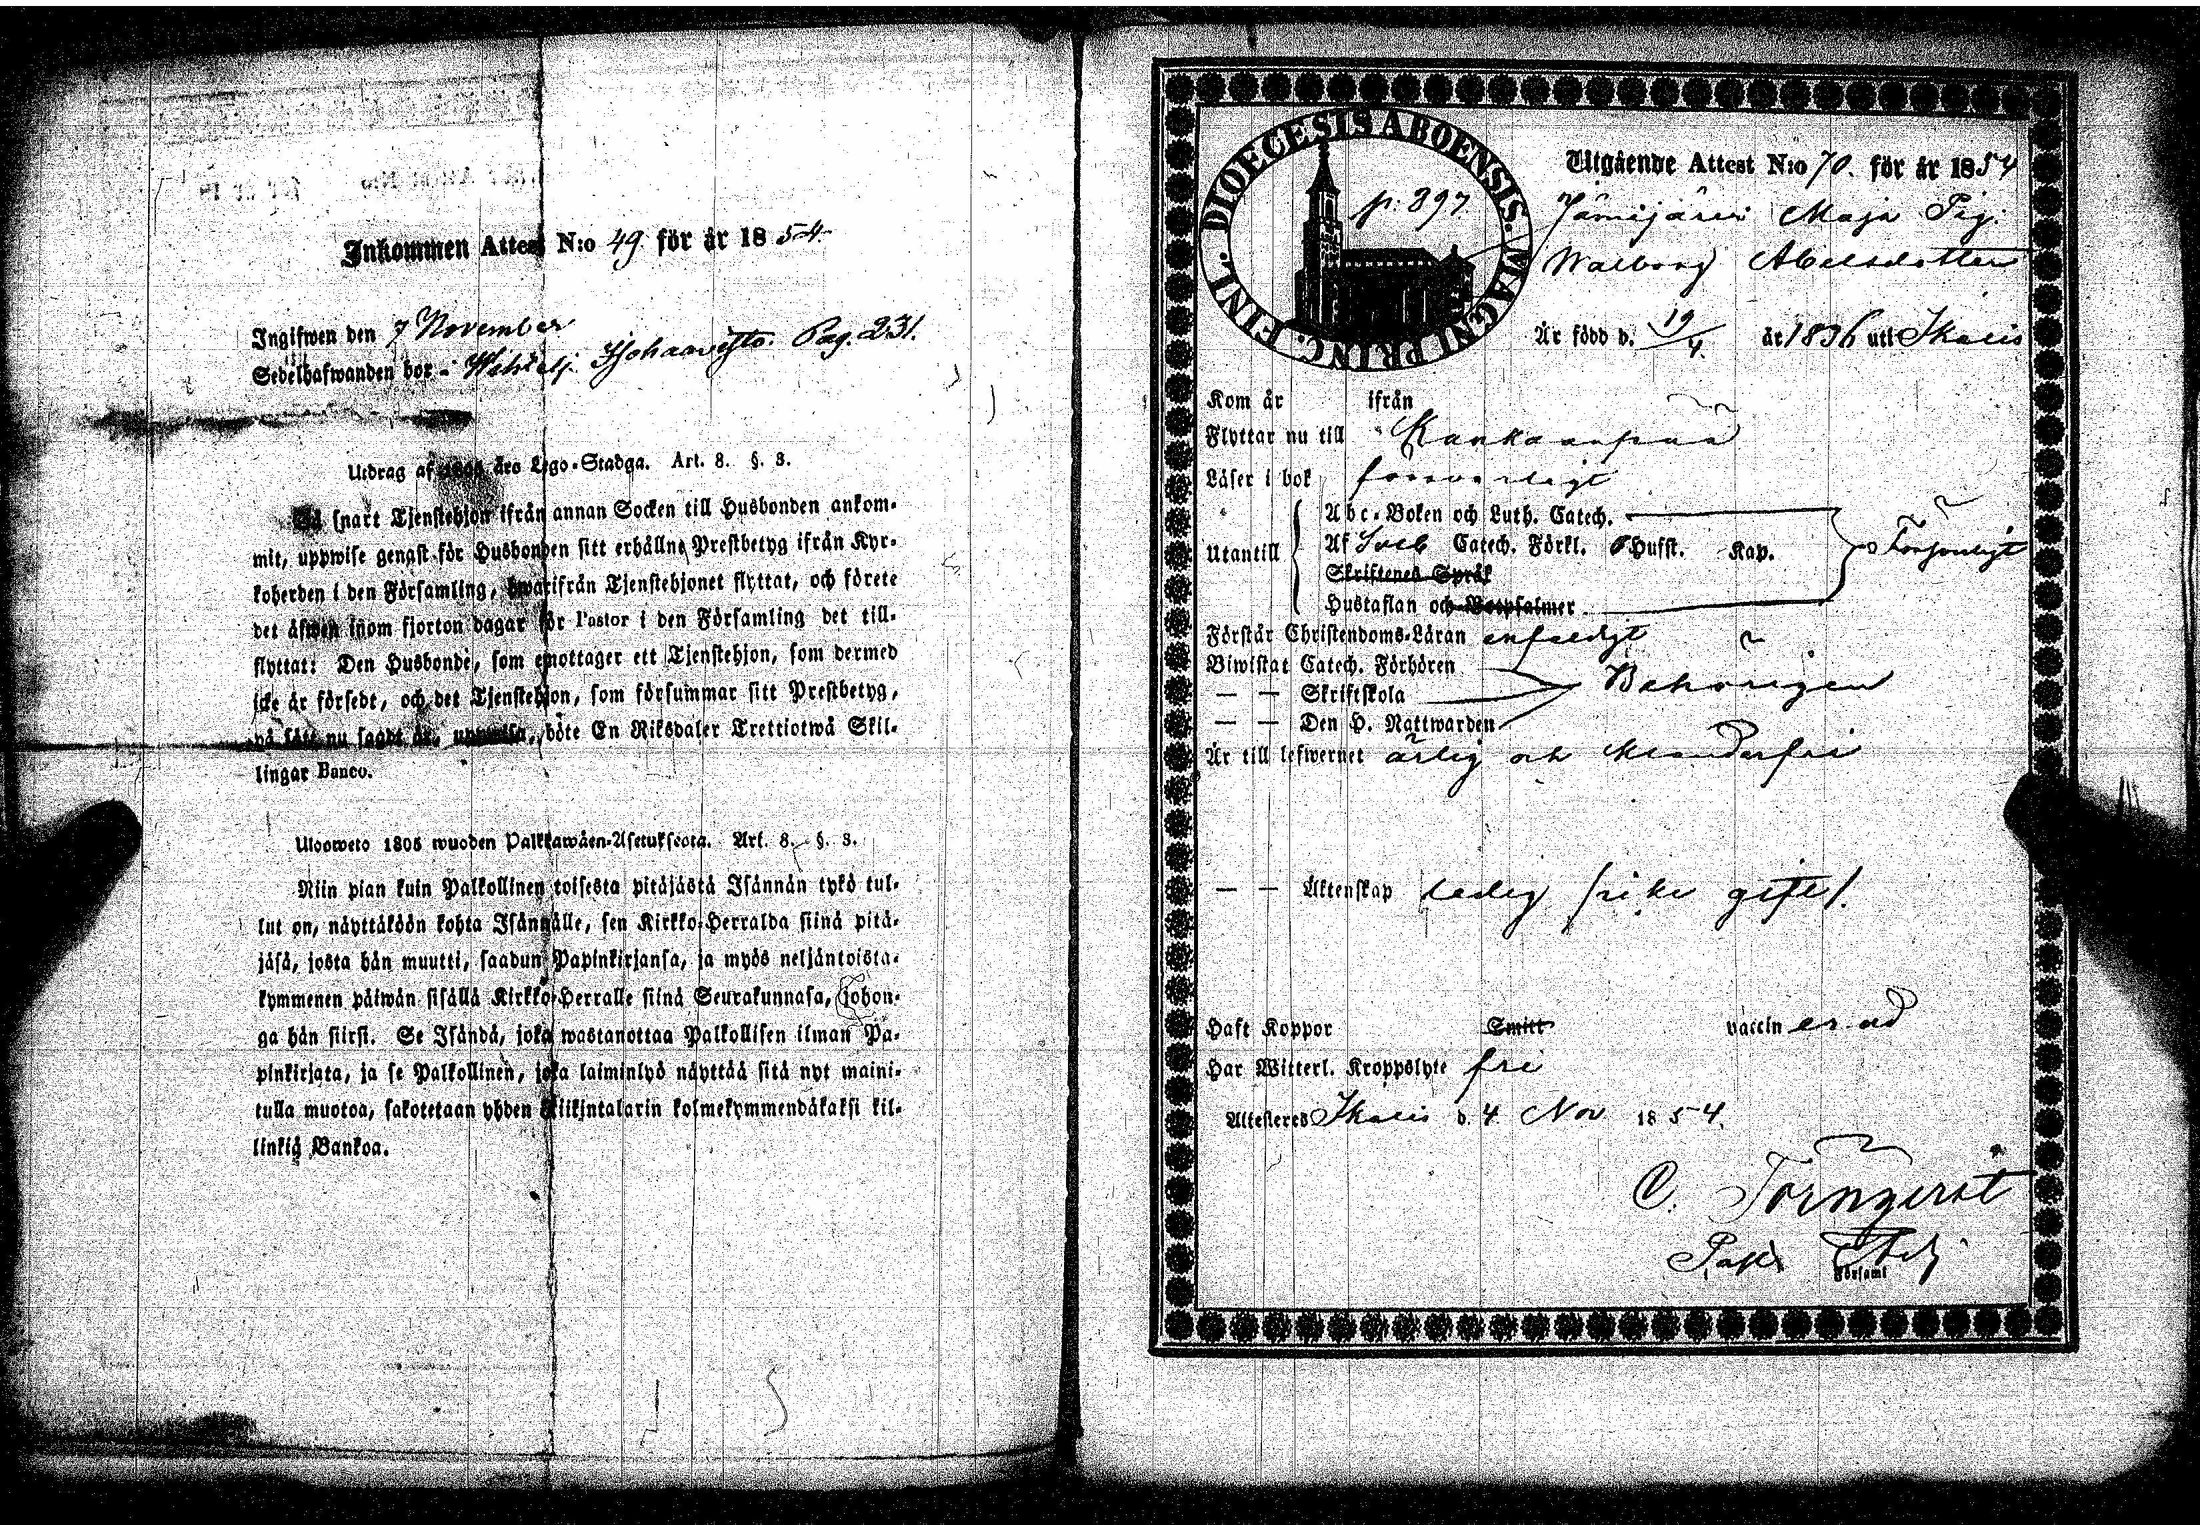 Inkommen Attest N:o 49 för år 1854.
Ingifwen den 7 November
Sedelhafwanden bor i Pag. 231.
Utdrag af års Lego-Stadga. Art. 8. §. 3.
Så snart Tjenstehjon ifrån annan Socken till Husbonden ankom-
mit, uppwise genast för Husbonden sitt erhållne Prestbetyg ifrån Kyr-
koherden i den Församling, hwarifrån Tjenstehjonet flyttat, och förete
det äfwen inom fjorton dagar för Pastor i den Församling det till-
flyttat: Den Husbonde, som emottager ett Tjenstehjon, som dermed
icke är försedt, och det Tjenstehjon, som försummar sitt Prestbetyg,
på sätt nu sagdt är, uppwisa, böte En Riksdaler Trettiotwå Skil-
lingar Banco.
Ulosweto 1805 wuoden Palkkawäen-Asetuksesta. Art. 8. §. 3.
Niin pian kuin Palkollinen toisesta pitäjästä Isännän tykö tul-
lut on, näyttäköön kohta Isännälle, sen Kirkko-Herralda siinä pitä-
jäsä, josta hän muutti, saadun Papinkirjansa, ja myös neljäntoista-
kymmenen päiwän sisällä Kirkko-Herralle siinä Seurakunnasa, johon-
ga hän siirsi. Se Isändä, joka wastanottaa Palkollisen ilman Pa-
pinkirjata, ja se Palkollinen, joka laiminlyö näyttää sitä nyt maini-
tulla muotoa, sakotetaan yhden Riikintalarin kolmekymmendäkaksi kil-
linkiä Bankoa.
DIOECESIS ABOENSIS. MAGNI PRINC. FINL.
p. 397
Utgående Attest N:o 70. för år 1854
Jämijärvi Maja Pig.
Walborg Abelsdotter
Är född d. 19/4. år 1836 uti Ikalis
Kom år ifrån
Flyttar nu till Kankaanpää
Läser i bok försvarligt
Utantill
Abc-Boken och Luth. Catech.
Af Sveb Catech. Förkl. 6 Hufst. Kap.
Skriftenes Språk
Hustaflan och Botpsalmer
Förstår Christendoms-Läran enfaldigt
Biwistat Catech. Förhören
— — Skriftskola Behörigen
— — Den H. Nattwarden
Är till lefwernet ärlig och klanderfri
— — Äktenskap ledig från gifte.
Haft Koppor Smitt vaccinerad
Har Witterl. Kroppslyte fri
Attesteres Ikalis d. 4 Nov 1854.
C. Törnqvist
Församl